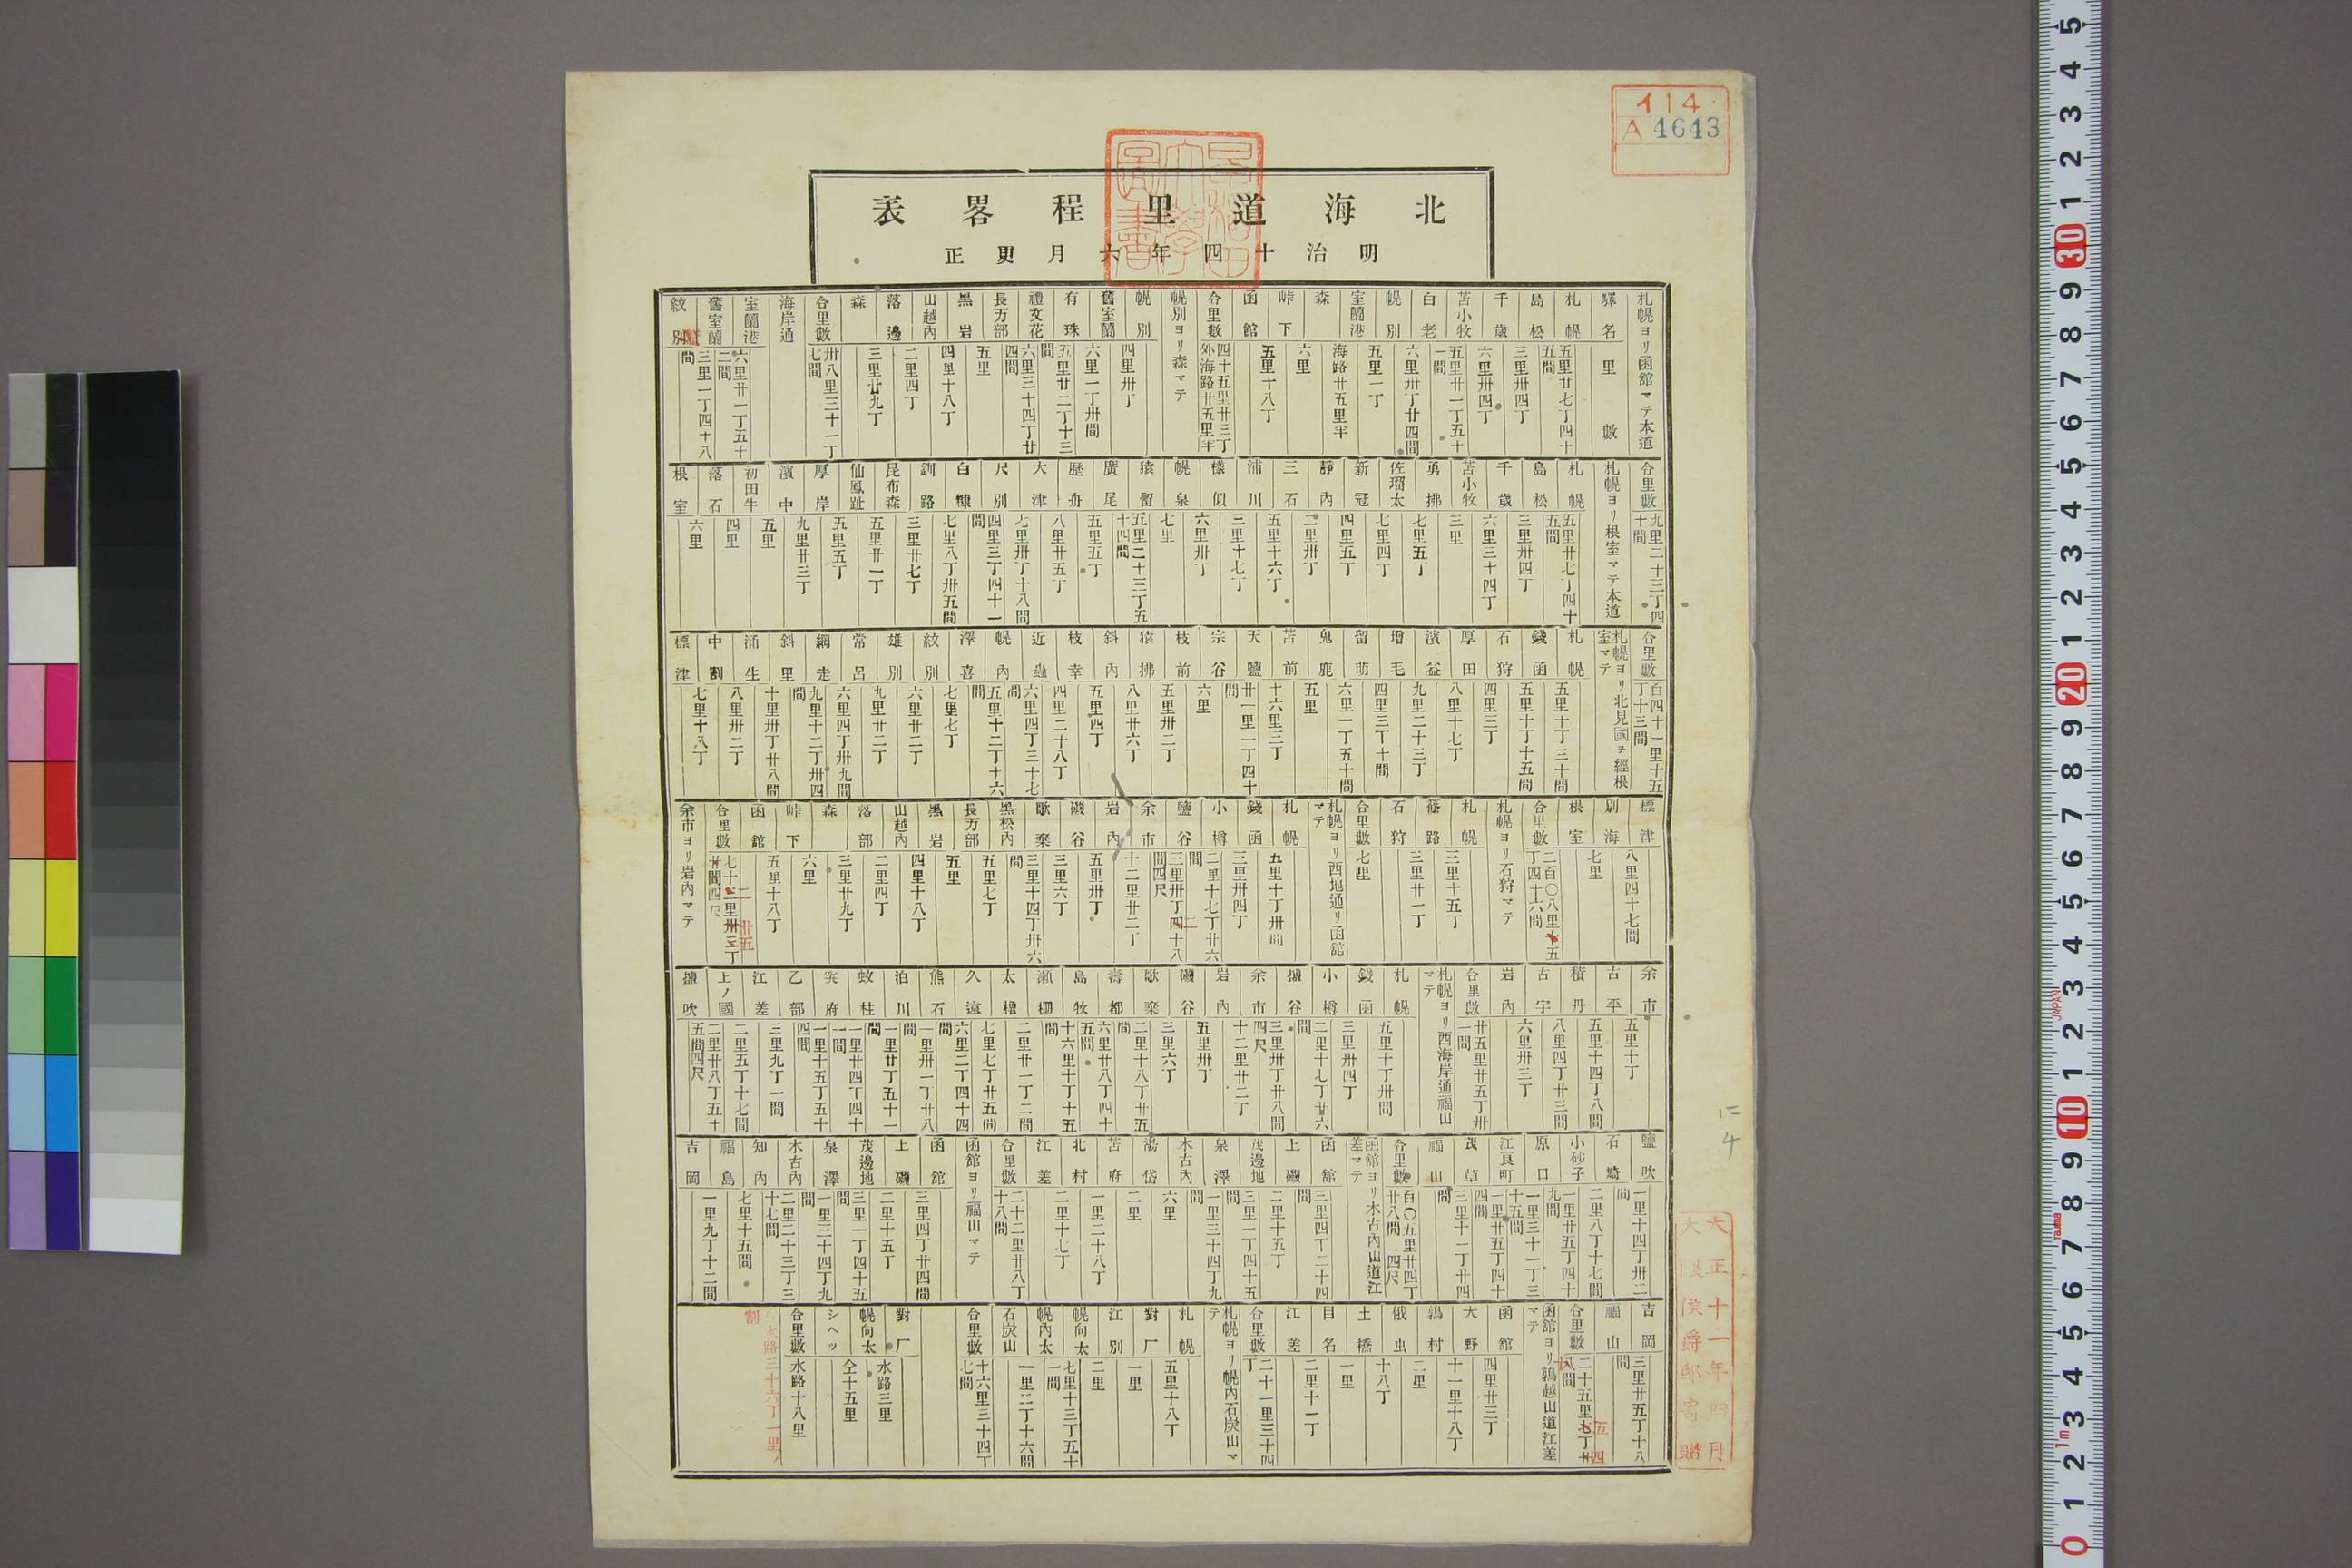 イ14
A 4643
北海道里程畧表
明治十四年六月更正
札幌ヨリ函館マテ本道
驛名 里數
札幌 五里廿七丁四十五間
島松 三里卅四丁
千歳 六里卅四丁
苫小牧 五里廿一丁五十一間
白老 六里卅丁廿四間
幌別 五里一丁
室蘭港 海路廿五里半
森 六里
峠下 五里十八丁
函館
合里數 四十五里卅三丁 外海路廿五里半
幌別ヨリ森マテ
幌別 四里卅丁
舊室蘭 六里一丁卅間
有珠 五里廿二丁十三間
禮文花 六里三十四丁廿四間
長万部 五里
黒岩 四里十八丁
山越内 二里四丁
落邊 三里廿九丁
森
合里數 卅八里三十一丁七間
海岸通
室蘭港 六里廿一丁五十二間
舊室蘭 三里一丁四十八間
紋別
合里數 九里二十三丁四十間
札幌ヨリ根室マテ本道
札幌 五里廿七丁四十五間
島松 三里卅四丁
千歳 六里三十四丁
苫小牧 三里
勇拂 七里五丁
佐瑠太 七里四丁
新冠 四里五丁
靜内 二里卅丁
三石 五里十六丁
浦川 三里十七丁
樣似 六里卅丁
幌泉 七里
猿留 五里二十三丁五十四間
廣尾 五里五丁
歴舟 八里廿五丁
大津 七里卅丁十八間
尺別 四里三丁四十一間
白糠 七里八丁卅五間
釧路 三里廿七丁
昆布森 五里廿一丁
仙鳳趾 五里五丁
厚岸 九里廿三丁
濱中 五里
初田牛 四里
落石 六里
根室
合里數 百四十一里十五丁十三間
札幌ヨリ北見國ヲ經根室マテ
札幌 五里十丁三十間
錢函 五里十丁十五間
石狩 四里三丁
厚田 八里十七丁
濱益 九里二十三丁
増毛 四里三丁十間
留萌 六里一丁五十間
鬼鹿 五里
苫前 十六里三丁
天鹽 廿一里一丁四十間
宗谷 六里
枝前 五里卅二丁
猿拂 八里廿六丁
斜内 五里四丁
枝幸 四里二十八丁
近蟲 六里四丁三十七間
幌内 五里十二丁十六間
澤喜 七里七丁
紋別 六里廿二丁
雄別 九里廿二丁
常呂 六里四丁卅九間
網走 九里十二丁卅四間
斜里 十里卅丁廿八間
涌生 八里卅二丁
中割 七里十八丁
標津
標津 八里四十七間
別海 七里
根室
合里數 二百〇八里十五丁四十六間
札幌ヨリ石狩マテ
札幌 三里十五丁
篠路 三里廿一丁
石狩
合里數 七里
札幌ヨリ西地通リ函館マテ
札幌 五里十丁卅間
錢函 三里卅四丁
小樽 二里十七丁廿六間
鹽谷 三里卅丁四十八間四尺
余市 十二里廿二丁
岩内 五里卅丁
磯谷 三里六丁
歌棄 三里十四丁卅六間
黑松内 五里七丁
長万部 五里
黒岩 四里十八丁
山越内 二里四丁
落部 三里廿九丁
森 六里
峠下 五里十八丁
函館
合里數 七十 里卅 丁廿間四尺
二 卅五
余市ヨリ岩内マテ
余市 五里十丁
古平 五里十四丁八間
積丹 八里四丁廿三間
古宇 六里卅三丁
岩内
合里數 廿五里廿五丁卅一間
札幌ヨリ西海岸通福山マテ
札幌 五里十丁卅間
錢函 三里卅四丁
小樽 二里十七丁廿六間
摭谷 三里卅丁廿八間四尺
余市 十二里廿二丁
岩内 五里卅丁
磯谷 三里六丁
歌棄 二里十八丁廿五間
壽都 六里廿八丁四十五間
島牧 十六里十丁十五間
瀬棚 二里廿一丁二間
太櫓 七里七丁廿五間
久遠 六里二丁四十四間
熊石 一里卅一丁廿八間
泊川 一里廿丁五十一間
蚊柱 一里廿四丁四十一間
突府 一里十五丁五十四間
乙部 三里九丁一間
江差 二里五丁十七間
上ノ國 二里廿八丁五十五間四尺
摭吹
鹽吹 一里十四丁卅二間
石﨑 二里八丁十七間
小砂子 一里廿五丁四十九間
原口 一里三十一丁三十五間
江良町 一里廿五丁四十四間
茂草 三里十一丁廿四間
福山
合里數 百〇五里廿四丁廿八間四尺
函館ヨリ木古内山道江差マテ
函館 三里四丁二十四間
上磯 二里十五丁
茂邊地 三里一丁四十五間
泉澤 一里三十四丁九間
木古内 六里
湯岱 二里
苫府 一里二十八丁
北村 二里十七丁
江差
合里數 二十二里廿八丁十八間
函館ヨリ福山マテ
函館 三里四丁廿四間
上磯 二里十五丁
茂邊地 三里一丁四十五間
泉澤 一里三十四丁九間
木古内 二里二十三丁三十七間
知内 七里十五間
福島 一里九丁十二間
吉岡
吉岡 三里廿五丁十八間
福山
合里數 二十五里 丁 八間
五 四
函館ヨリ鶉越山道江差マテ
函館 四里廿三丁
大野 十一里十八丁
鶉村 二里
俄虫 十八丁
土橋 一里
目名 二里十一丁
江差
合里數 二十一里三十四丁
札幌ヨリ幌内石炭山マテ
札幌 五里十八丁
對厂 一里
江別 二里
幌向太 七里十三丁五十一間
幌内太 一里二丁十六間
石炭山
合里數 十六里三十四丁七間
對厂 水路三里
幌向太 仝十五里
シヘツ
合里數 水路十八里
水路三十六丁一里ノ割
ニ4
大正十一年四月
大隈侯爵邸寄贈